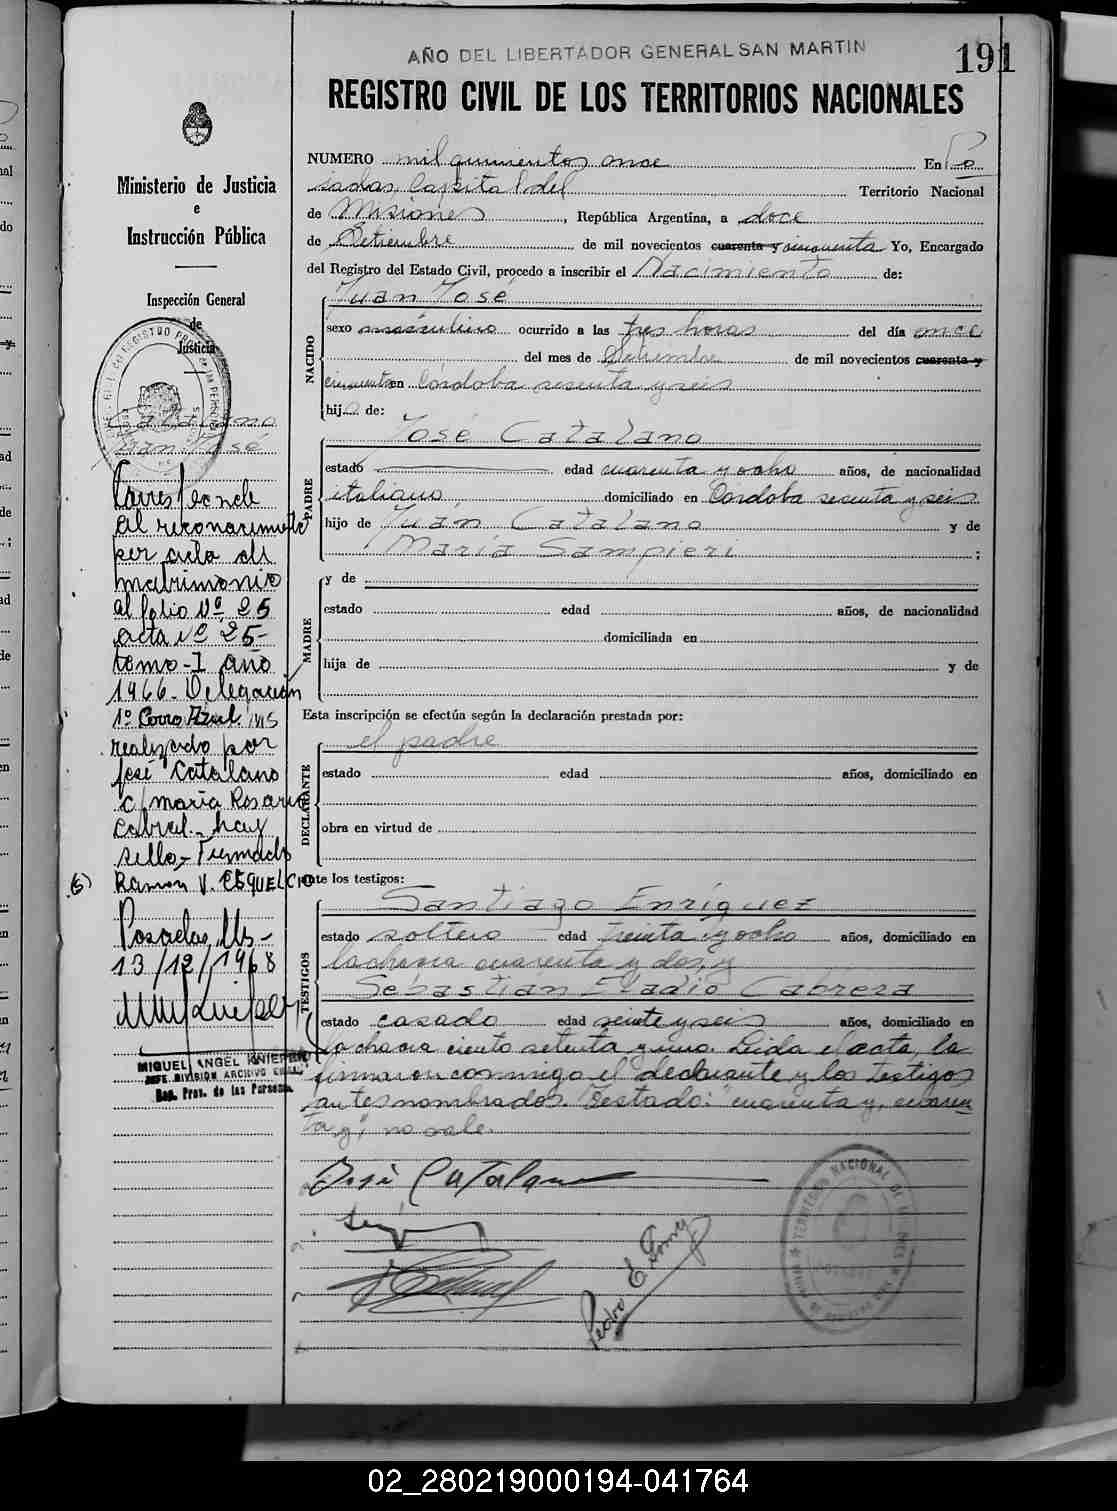 AÑO DEL LIBERTADOR GENERAL SAN MARTIN
191
REGISTRO CIVIL DE LOS TERRITORIOS NACIONALES
Ministerio de Justicia
e
Instrucción Pública
Inspección General
de
Justicia
Catalano
Juan José
al reconocimiento
por acta de
matrimonio
al folio Nº 25
acta Nº 25-
tomo-I año
1966- Delegación
1º Cerro Azul. MS
realizado por
José Catalano
c/ maría Rosario
Cabral.- hay
sello,- Firmado
Ramon V. ESQUELCI
(6)
Posadas, Ms-
13/12/1968
MIGUEL ANGEL KNIEPER
JEFE DIVISION ARCHIVO GRAL.
Reg. Prov. de las Personas
NUMERO mil quinientos once En Po
sadas, Capital del Territorio Nacional
de Misiones, República Argentina, a doce
de Setiembre de mil novecientos cuarenta y cincuenta Yo, Encargado
del Registro del Estado Civil, procedo a inscribir el Nacimiento de:
NACIDO
Juan José
sexo masculino ocurrido a las tres horas del día once
del mes de Setiembre de mil novecientos cuarenta y
cincuenta en Córdoba sesenta y seis
hijo de:
PADRE
José Catalano
estado edad cuarenta y ocho años, de nacionalidad
italiano domiciliado en Córdoba sesenta y seis
hijo de Juan Catalano y de
María Sampieri ;
MADRE
y de
estado edad años, de nacionalidad
domiciliada en
hija de y de
Esta inscripción se efectúa según la declaración prestada por:
DECLARANTE
el padre
estado edad años, domiciliado en
obra en virtud de
ante los testigos:
TESTIGOS
Santiago Enríquez
estado soltero edad treinta y ocho años, domiciliado en
la chacra cuarenta y dos, y
Sebastián Eladio Cabrera
estado casado edad veinte y seis años, domiciliado en
la chacra ciento setenta y uno. Leida el acta, la
firmaron conmigo el declarante y los testigos
antes nombrados. Testado: "cuarenta y, cuaren
ta y", no vale.
José Catalano
Pedro E. Gomez
TERRITORIO NACIONAL DE MISIONES
02_280219000194-041764